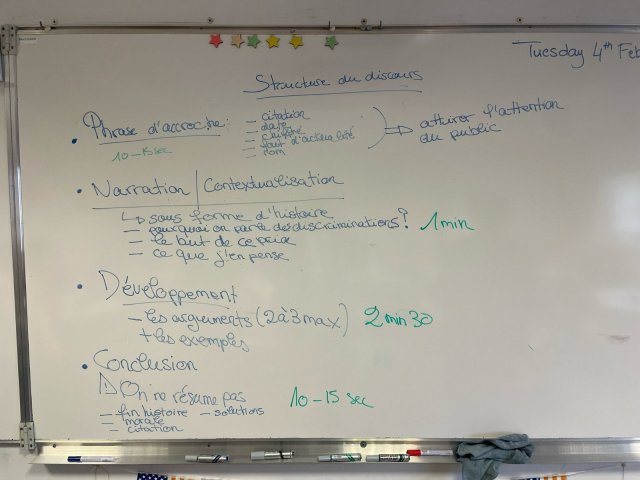 Tuesday 4th Feb
Structure du discours
• Phrase d'accroche :
10-15 sec
- citation
- date
- chiffre
- fait d'actualité
- nom
⇒ attirer l'attention
du public
• Narration / Contextualisation
↳ sous forme d'histoire
- pourquoi on parle des discriminations ?
- le but de ce prix
- ce que j'en pense
1 min
• Développement
- les arguments (2 à 3 max)
+ les exemples
2 min 30
• Conclusion
⚠ On ne résume pas
- fin histoire - solutions
- morale
- citation
10-15 sec